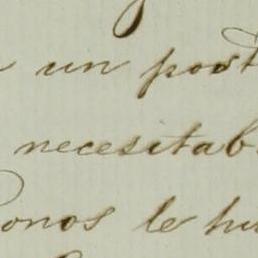 un post
necesitab
onos le hu